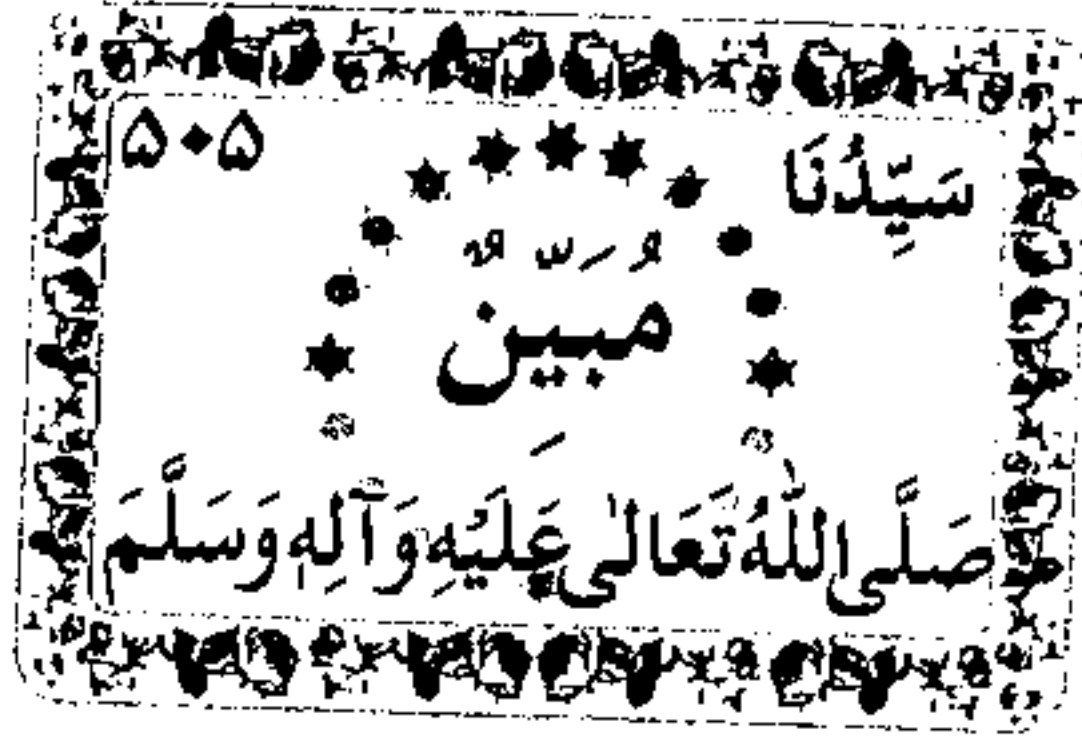 سَيِّدُنَا ۵۰۵
مُبَيِّنٌ
صَلَّى اللّٰهُ تَعَالٰى عَلَيْهِ وَآلِهٖ وَسَلَّمَ